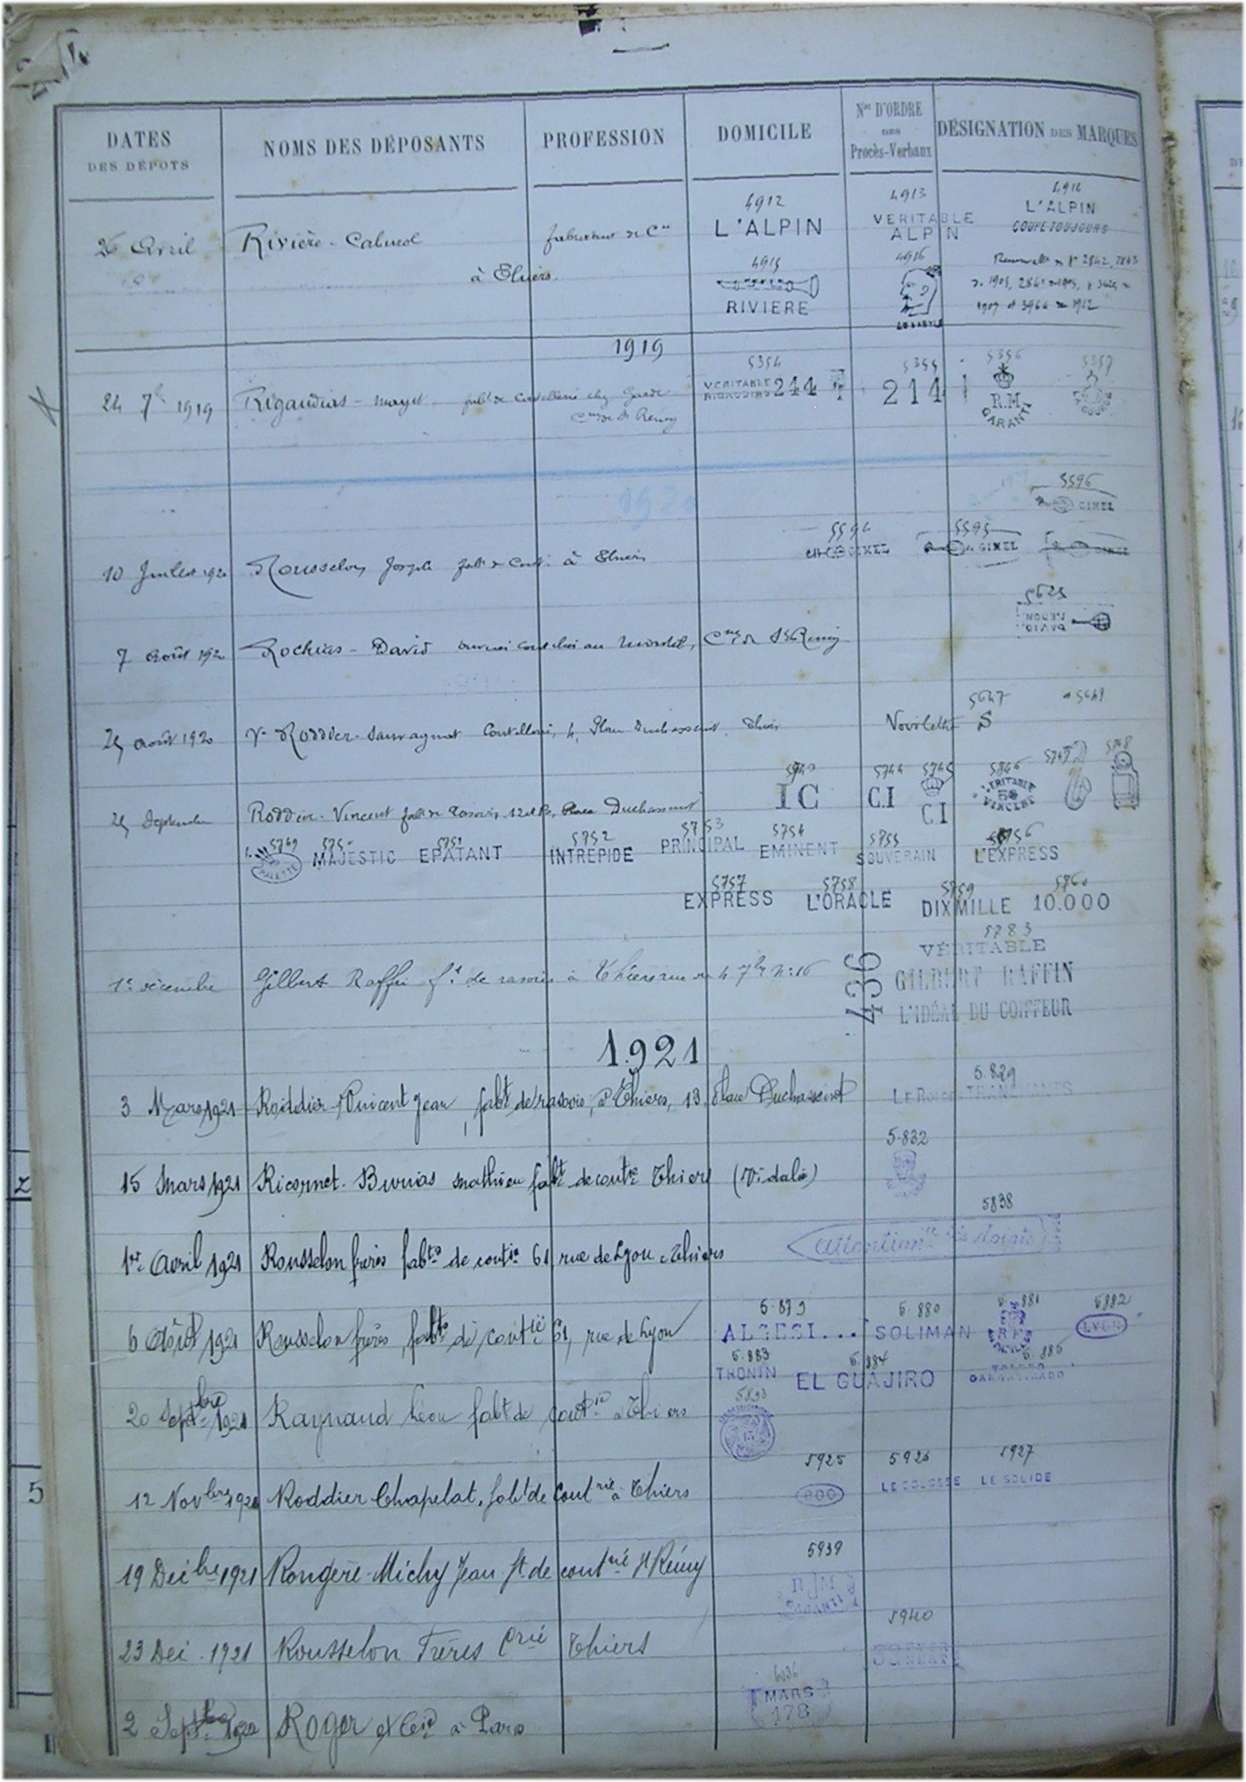 DATES
DES DÉPÔTS
NOMS DES DÉPOSANTS
PROFESSION
DOMICILE
Nos D'ORDRE
DES
Procès-Verbaux
DÉSIGNATION DES MARQUES
4912
4913
4914
26 Avril
Rivière - Calmel
fabricant de Cie
L'ALPIN
VERITABLE
ALPIN
L'ALPIN
COUPE TOUJOURS
à Thiers
4915
4916
RIVIERE
1919
5354
5355
5356
5357
24 7bre 1919
Rigaudias - Mayet
fabt de Coutellerie chez Garde
Cne de St Remy
VERITABLE
RIGAUDIAS 244
214
R.M
GARANTI
1920
5596
GIMEL
5594
5595
10 Juillet 1920
Rousselon Joseph fabt de Cout. à Thiers
GIMEL
GIMEL
5625
7 Août 1920
Rochias - David ouvrier coutelier au Cne de St Remy
DAVID
5647
5648
25 août 1920
Vve Roddier - Sauvagnat Coutellerie, 4, Place Duchasseint, Thiers
S
5743
5744
5745
5746
5747
5748
25 Septembre
Roddier - Vincent fabt de rasoirs, Place Duchasseint
IC
C.I
C I
VERITABLE
58
VINCENT
5749
5750
5751
5752
5753
5754
5755
5756
MAJESTIC
EPATANT
INTREPIDE
PRINCIPAL
EMINENT
SOUVERAIN
L'EXPRESS
5757
5758
5759
5760
EXPRESS
L'ORACLE
DIXMILLE
10.000
5783
1er décembre
Gilbert Raffin ft de rasoirs à Thiers rue du 4 7bre No 16
436
VÉRITABLE
GILBERT RAFFIN
L'IDÉAL DU COIFFEUR
1921
5.829
3 Mars 1921
Roddier Vincent Jean, fabt de rasoirs, à Thiers, 13 Place Duchasseint
5.832
15 Mars 1921
Ricornet - Brunias Mathieu fabt de coutie Thiers (Vidalie)
5838
1er Avril 1921
Rousselon frères fabts de coutie 61 rue de Lyon Thiers
5.879
5.880
5.881
5882
6 Août 1921
Rousselon frères, fabts de coutie 61, rue de Lyon
SOLIMAN
LYON
5.883
5.884
5.885
TRONIN
EL GUAJIRO
20 Septbre 1921
Raynaud Léon fabt de coutie à Thiers
5893
5925
5926
5927
12 Novbre 1921
Roddier Chapelat, fabt de Coutrie à Thiers
ROD
LE COLOSSE
LE SOLIDE
5939
19 Decbre 1921
Rongère - Michy Jean ft de coutrie St Rémy
5940
23 Dec. 1921
Rousselon Frères Thiers
2 Septbre 1922
Roger et Cie à Paris
MARS
178